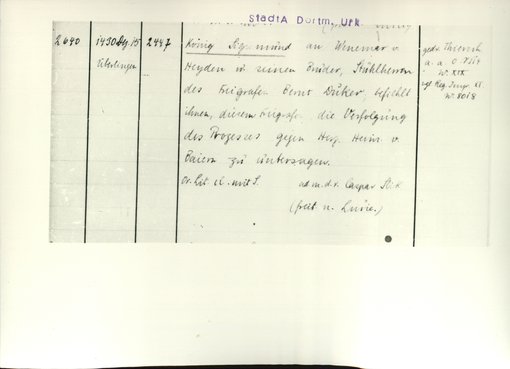 StadtA Dortm. Urk.
2640 1430 Sez. 15 2447
Überlingen
König Sigmund an Wenemar v.
Heyden u. seinen Bruder, Stuhlherren
des Freigrafen Bernt Düker, befiehlt
ihnen, diesem Freigrafen, die Verfolgung
des Prozesses gegen Herz. Heinr. v.
Baiern zu untersagen.
Or. Lit. cl. mit S. ad m. d. r. Caspar Slik
gedr. Thiersch
a. a. O.
N. XIX
vgl. Reg. Imp. XI
N. 8018